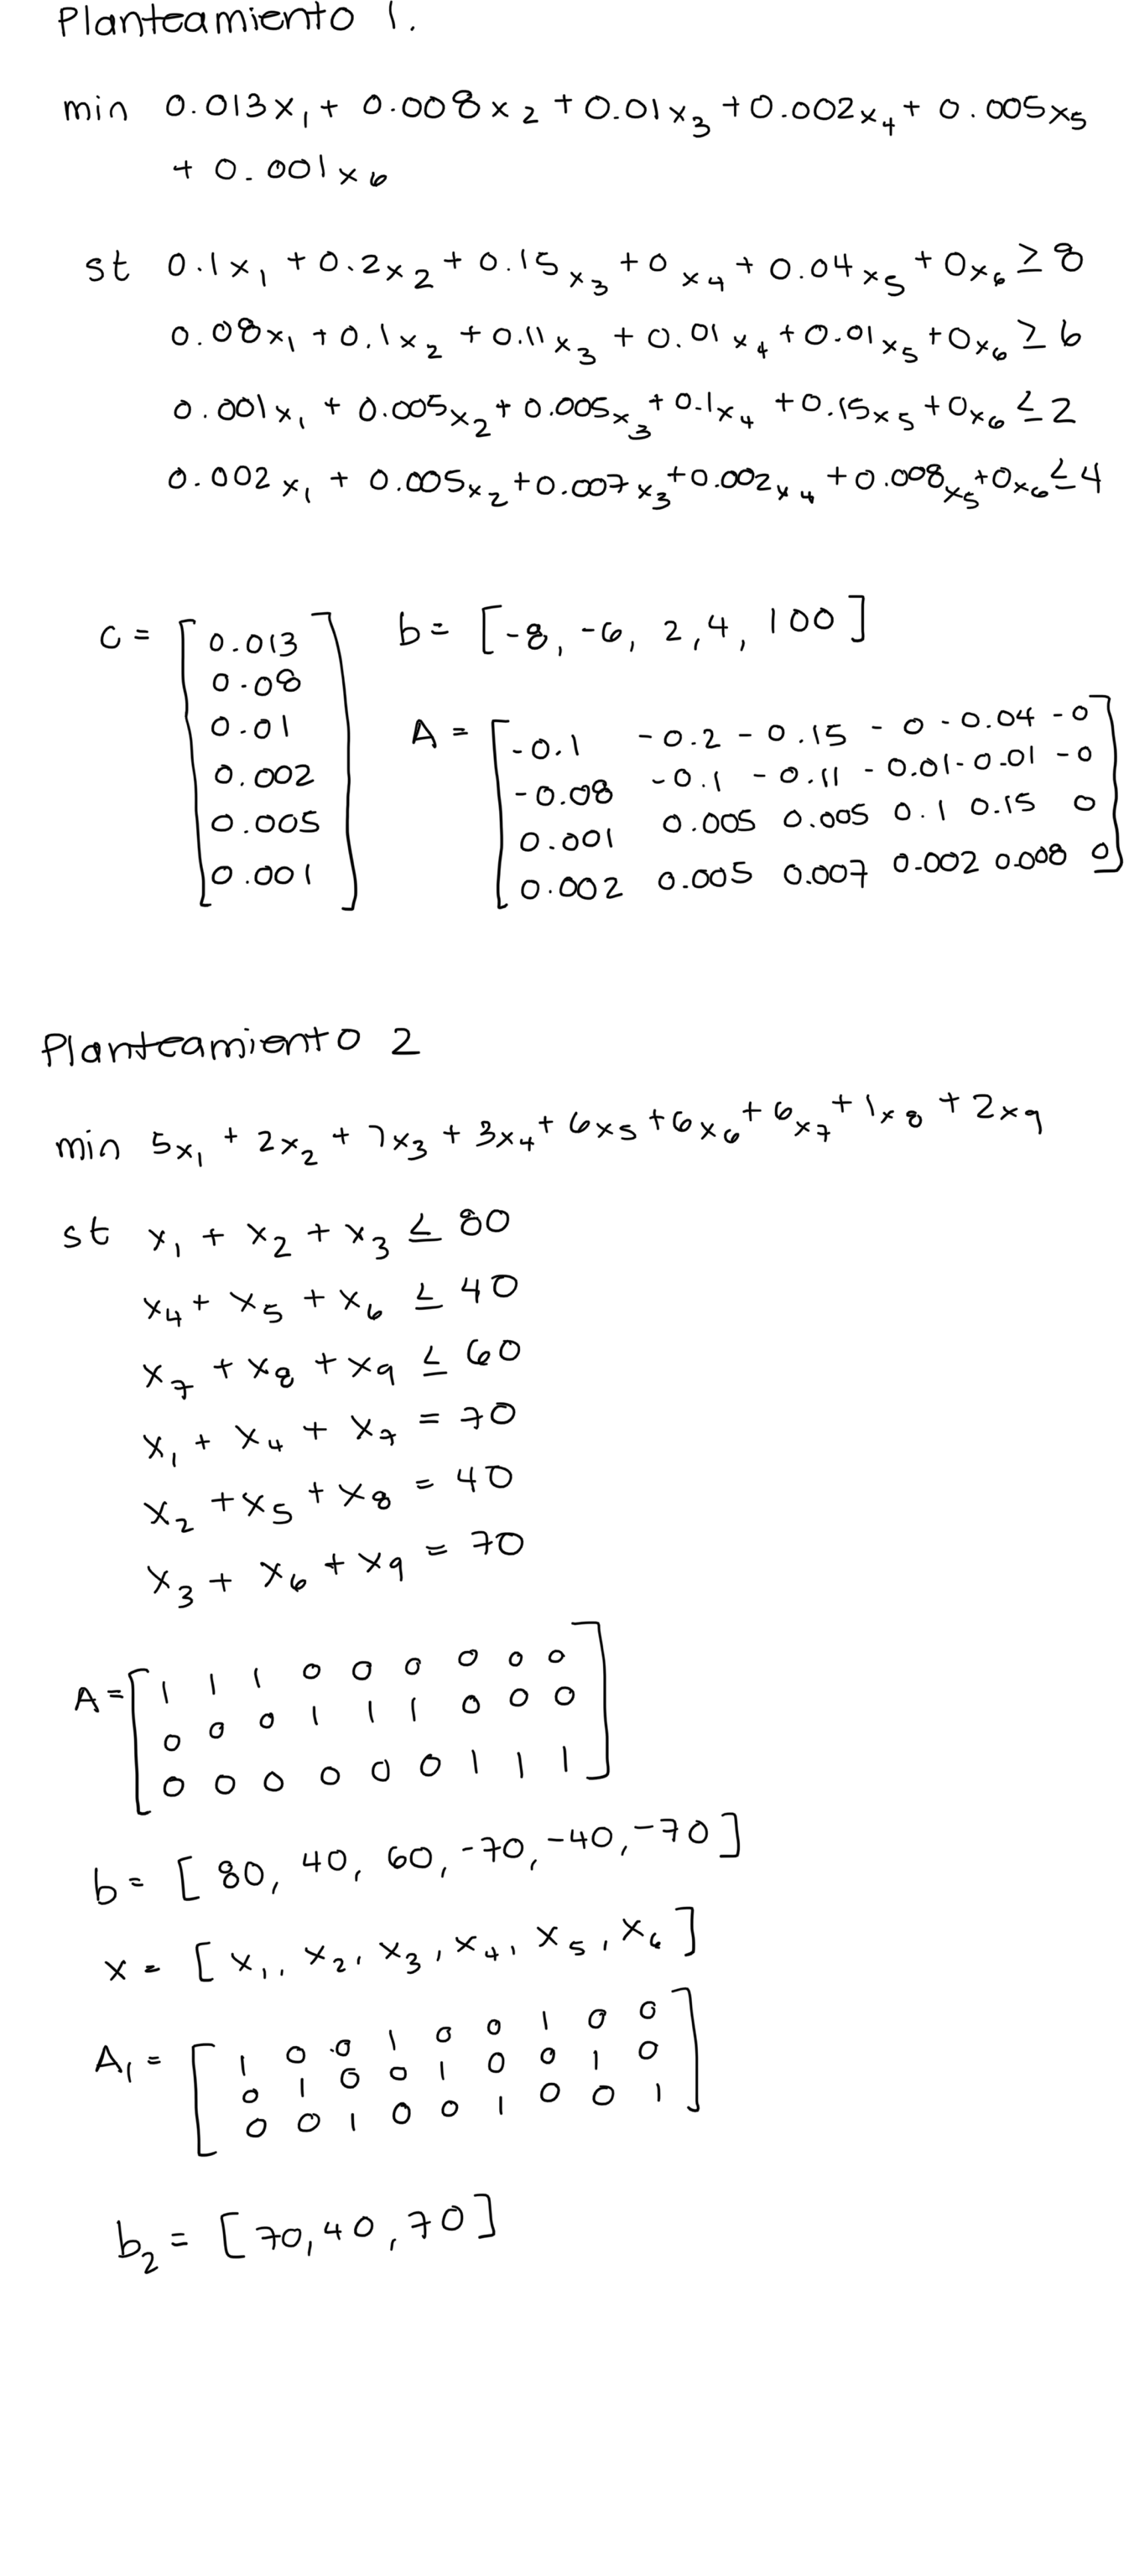 Planteamiento 1.
min 0.013x₁ + 0.008x₂ + 0.01x₃ + 0.002x₄ + 0.005x₅
+ 0.001x₆
st 0.1x₁ + 0.2x₂ + 0.15x₃ + 0x₄ + 0.04x₅ + 0x₆ ≥ 8
0.08x₁ + 0.1x₂ + 0.11x₃ + 0.01x₄ + 0.01x₅ + 0x₆ ≥ 6
0.001x₁ + 0.005x₂ + 0.005x₃ + 0.1x₄ + 0.15x₅ + 0x₆ ≤ 2
0.002x₁ + 0.005x₂ + 0.007x₃ + 0.002x₄ + 0.008x₅ + 0x₆ ≤ 4
c = [0.013
0.08
0.01
0.002
0.005
0.001]
b = [-8, -6, 2, 4, 100]
A = [-0.1 -0.2 -0.15 -0 -0.04 -0
-0.08 -0.1 -0.11 -0.01 -0.01 -0
0.001 0.005 0.005 0.1 0.15 0
0.002 0.005 0.007 0.002 0.008 0]
Planteamiento 2
min 5x₁ + 2x₂ + 7x₃ + 3x₄ + 6x₅ + 6x₆ + 6x₇ + 1x₈ + 2x₉
st x₁ + x₂ + x₃ ≤ 80
x₄ + x₅ + x₆ ≤ 40
x₇ + x₈ + x₉ ≤ 60
x₁ + x₄ + x₇ = 70
x₂ + x₅ + x₈ = 40
x₃ + x₆ + x₉ = 70
A = [1 1 1 0 0 0 0 0 0
0 0 0 1 1 1 0 0 0
0 0 0 0 0 0 1 1 1]
b = [80, 40, 60, -70, -40, -70]
x = [x₁, x₂, x₃, x₄, x₅, x₆]
A₁ = [1 0 0 1 0 0 1 0 0
0 1 0 0 1 0 0 1 0
0 0 1 0 0 1 0 0 1]
b₂ = [70, 40, 70]